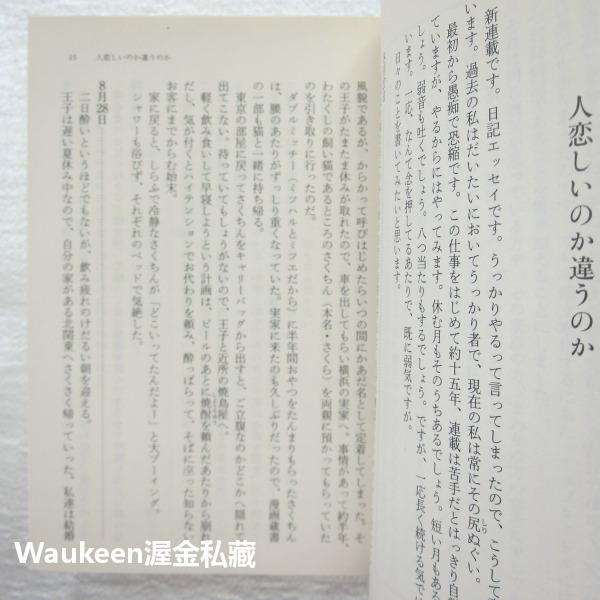 人恋しいのか違うのか
新連載です。日記エッセイです。うっかりやるって言ってしまったので、こうして
います。過去の私はだいたいにおいてうっかり者で、現在の私は常にその尻ぬぐい。
しり
最初から愚痴で恐縮です。この仕事をはじめて約十五年、連載は苦手だとはっきり自
ていますが、やるからにはやってみます。休む月もそのうちあるでしょう。短い月もある
しょう。弱音も吐くでしょう。八つ当たりもするでしょう。ですが、一応長く続ける気で
います。一応、なんて念を押してるあたりで、既に弱気ですが。
日々のことを書いてみたいと思います。
15 人恋しいのか違うのか
風貌であるが、からかって呼びはじめたらいつの間にかあだ名として定着してしまった。そ
の王子がたまたま休みが取れたので、車を出してもらい横浜の実家へ。事情があって約半年、
わたくしの飼い猫であるところのさくちん（本名・さくら）を両親に預かってもらっていた
のを引き取りに行ったのだ。
ダブルミッチー（ミツハルとミツエだから）に半年間おやつをたんまりもらったさくちん
は、腰のあたりがずっしり重くなっていた。実家に来たのも久しぶりだったので、漫画蔵書
の一部も猫と一緒に持ち帰る。
東京の部屋に戻ってさくちんをキャリーバッグから出すと、ご立腹なのかどこかへ隠れて
出てこない。待っていてもしょうがないので、王子と近所の焼鳥屋へ。
軽く飲み食いして早寝しようという計画は、ビールのあとに焼酎を頼んだあたりから崩れ
だし、気が付くとハイテンションでお代わりを頼み、酔っぱらって、そばに座った知らない
お客にまでからむ始末。
家に戻ると、しらふで冷静なさくちんが「どこいってたんだよー」と大ブーイング。
シャワーも浴びず、それぞれのベッドで気絶した。
8月28日
二日酔いというほどでもないが、飲み疲れのけだるい朝を迎える。
王子は遅い夏休み中なので、自分の家がある北関東へさくさく帰っていった。私達は結婚
Waukeen渥金私藏